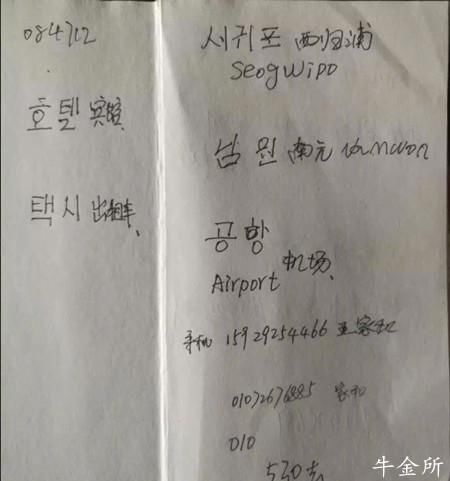 084712
호텔 宾馆
택시 出租车
서귀포 西归浦
Seogwipo
남원 南元 Namwon
공항
Airport 机场
手机 15929254466 王家和
01072676885 家和
010
牛金所